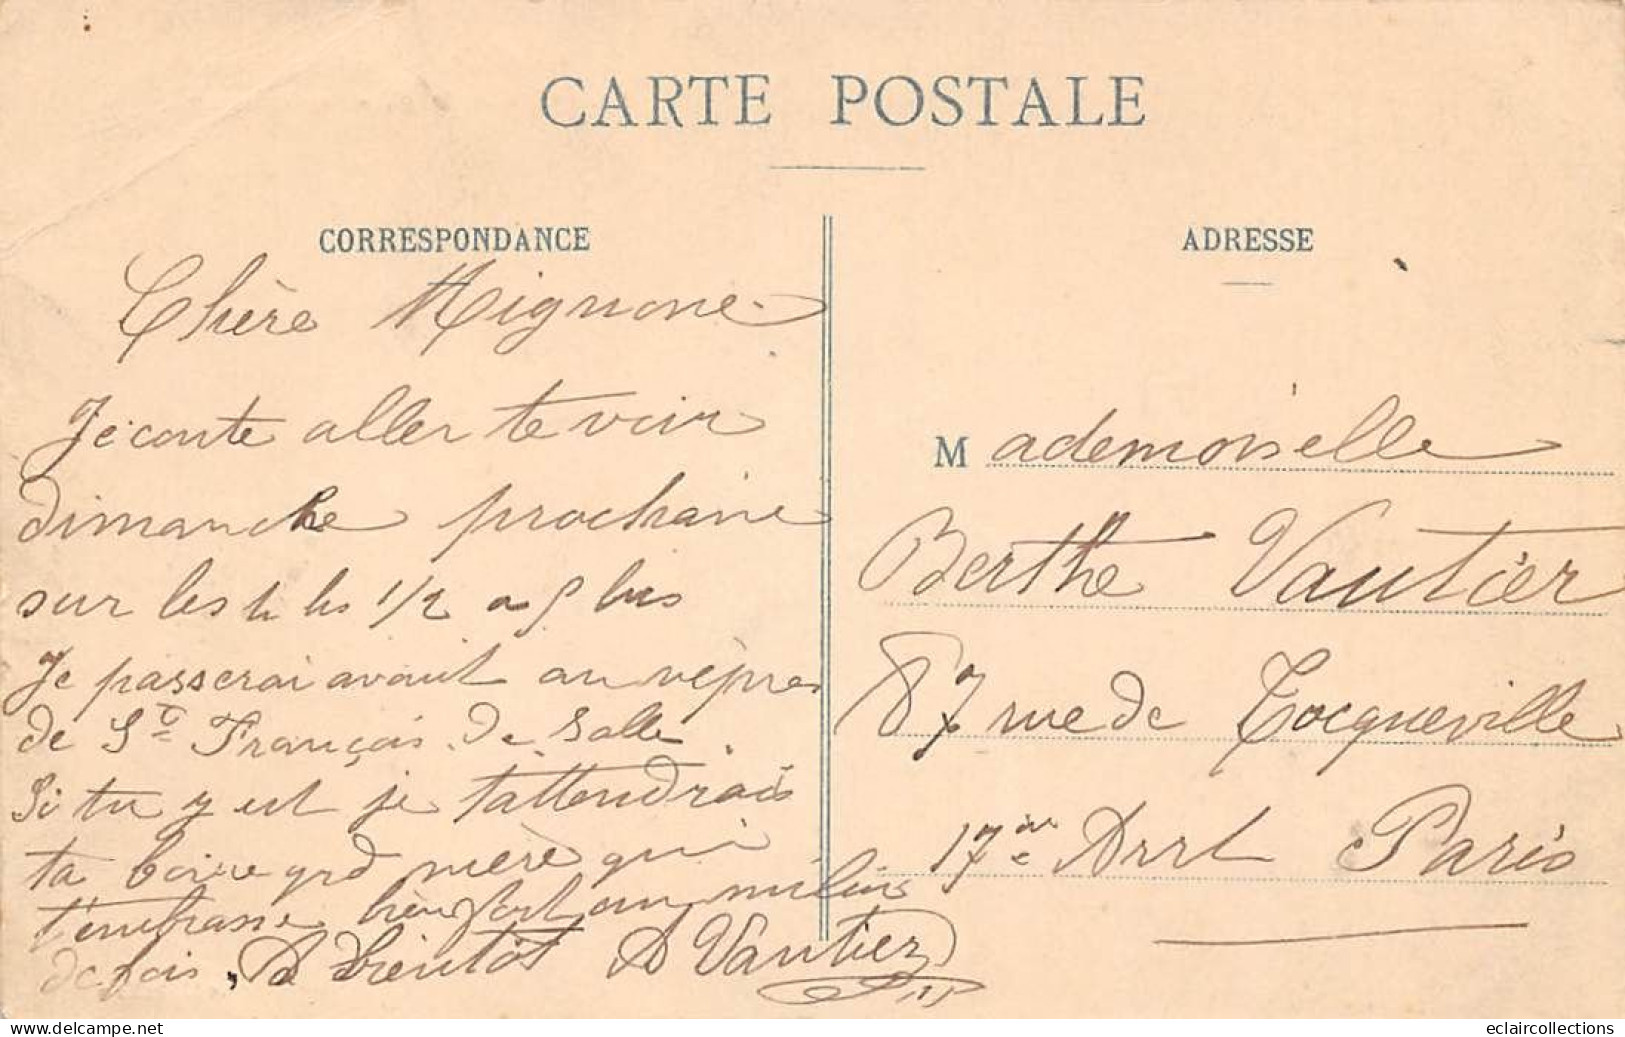 CARTE POSTALE
CORRESPONDANCE
Chère Mignone
Je conte aller te voir
dimanche prochaine
sur les 4 hs 1/2 a 5 hrs
Je passerai avant au vèpres
de St François de Salle
Si tu y est je t'attendrais
ta bonne grd mère qui
t'embrasse bien fort un milier
de fois, A Bientôt A Vautier
ADRESSE
Mademoiselle
Berthe Vautier
87 rue de Tocqueville
17e Arrt Paris
delcampe.net
eclaircollections